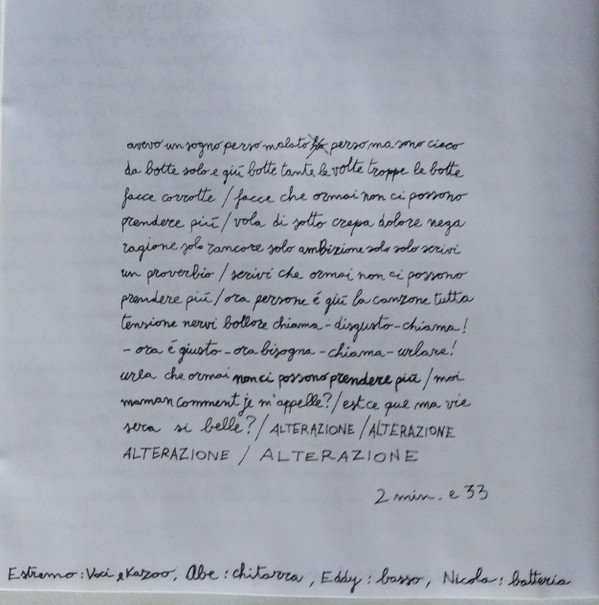 avevo un sogno perso malato perso ma sono cieco
da botte solo e giù botte tante le volte troppe le botte
facce corrotte / facce che ormai non ci possono
prendere più / vola di sotto crepa dolore nega
ragione solo rancore solo ambizione solo solo scrivi
un proverbio / scrivi che ormai non ci possono
prendere più / ora persone é giù la canzone tutta
tensione nervi bollore chiama - disgusto - chiama!
- ora é giusto - ora bisogna - chiama - urlare!
urla che ormai non ci possono prendere più / moi
maman comment je m'appelle? / est ce que ma vie
sera si belle? / ALTERAZIONE / ALTERAZIONE
ALTERAZIONE / ALTERAZIONE
2 min. e 33
Estremo: Voci e Kazoo, Abe: chitarra, Eddy: basso, Nicola: batteria